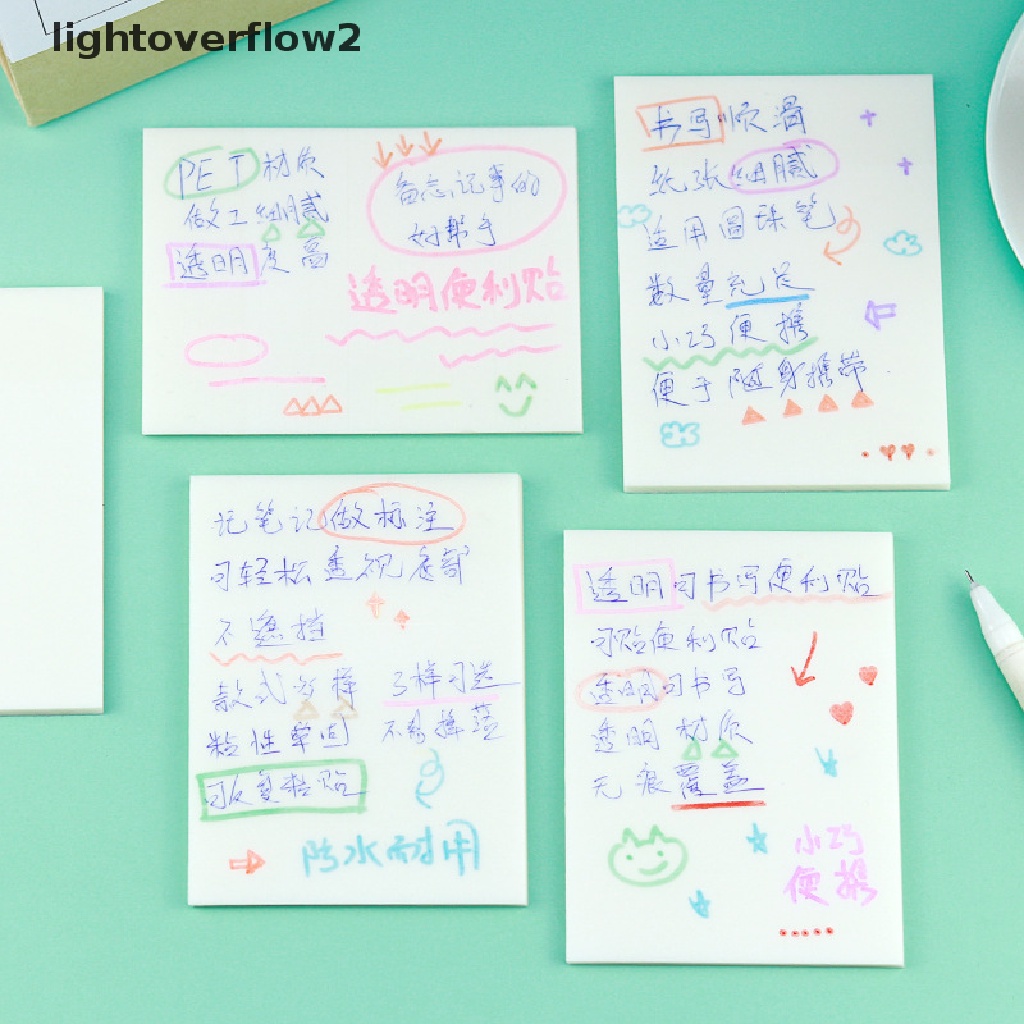 lightoverflow2
PET 材质
做工细腻
透明度高
备忘记事的
好帮手
透明便利贴
书写顺滑
纸张细腻
适用圆珠笔
数量充足
小巧便携
便于随身携带.
记笔记做标注
可轻松透视底部
不遮挡
款式多样 多样可选
粘性牢固 不易掉落
可反复粘贴
防水耐用
透明可书写便利贴
可贴便利贴
透明可书写
透明材质
无痕覆盖
小巧
便携